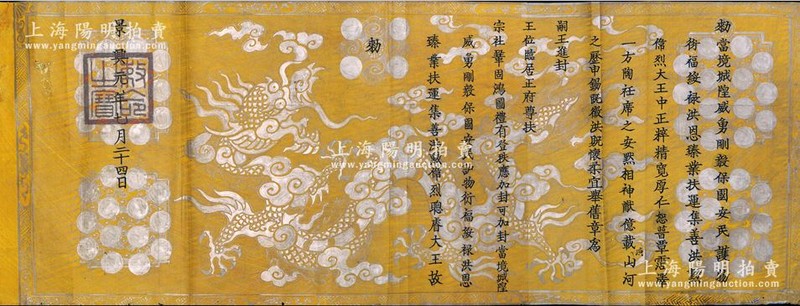 上海陽明拍賣
www.yangmingauction.com
上海陽明拍賣
www.yangmingauction.com
敕當境城隍威勇剛毅保國安民護物
衍福綏祿洪恩臻業扶運集善洪
偉烈大王中正粹精寬厚仁恕普覃
一方陶衽席之安黙相神猷億載山河
之歷申錫既徵洪貺懷柔宜舉舊章爲
嗣王進封
王位臨居正府尊扶
宗社鞏固鴻圖禮有登秩應加封可加封當境城隍
威勇剛毅保國安民護物衍福綏祿洪恩
臻業扶運集善洪偉烈聰睿大王故
敕
景興元年 月二十四日
敕命之寶
上海陽明拍賣
www.yangmingauction.com
上海陽明拍賣
www.yangmingauction.com